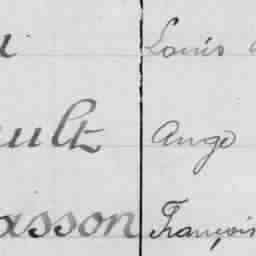 Louis
ault Ange
asson François